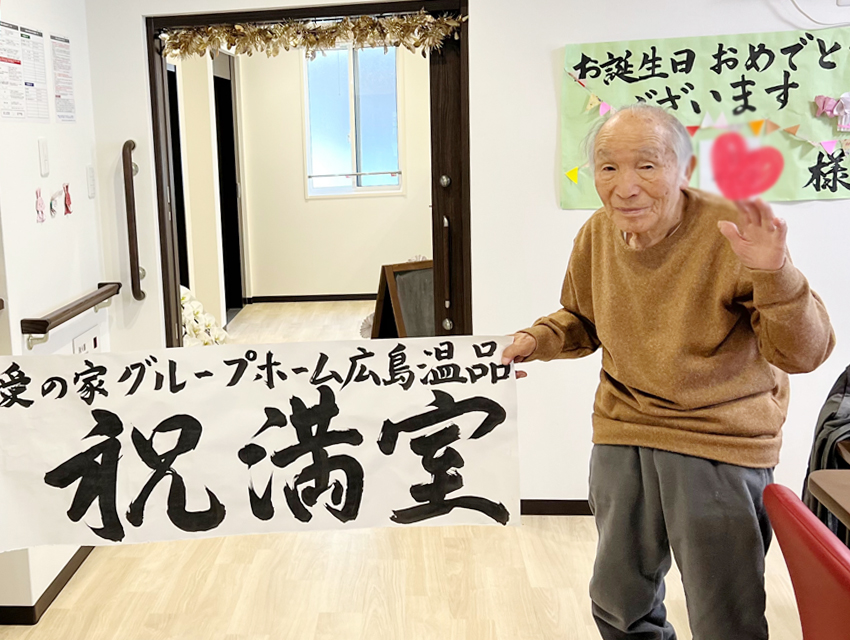 お誕生日 おめでと
ございます
様
愛の家グループホーム広島温品
祝満室